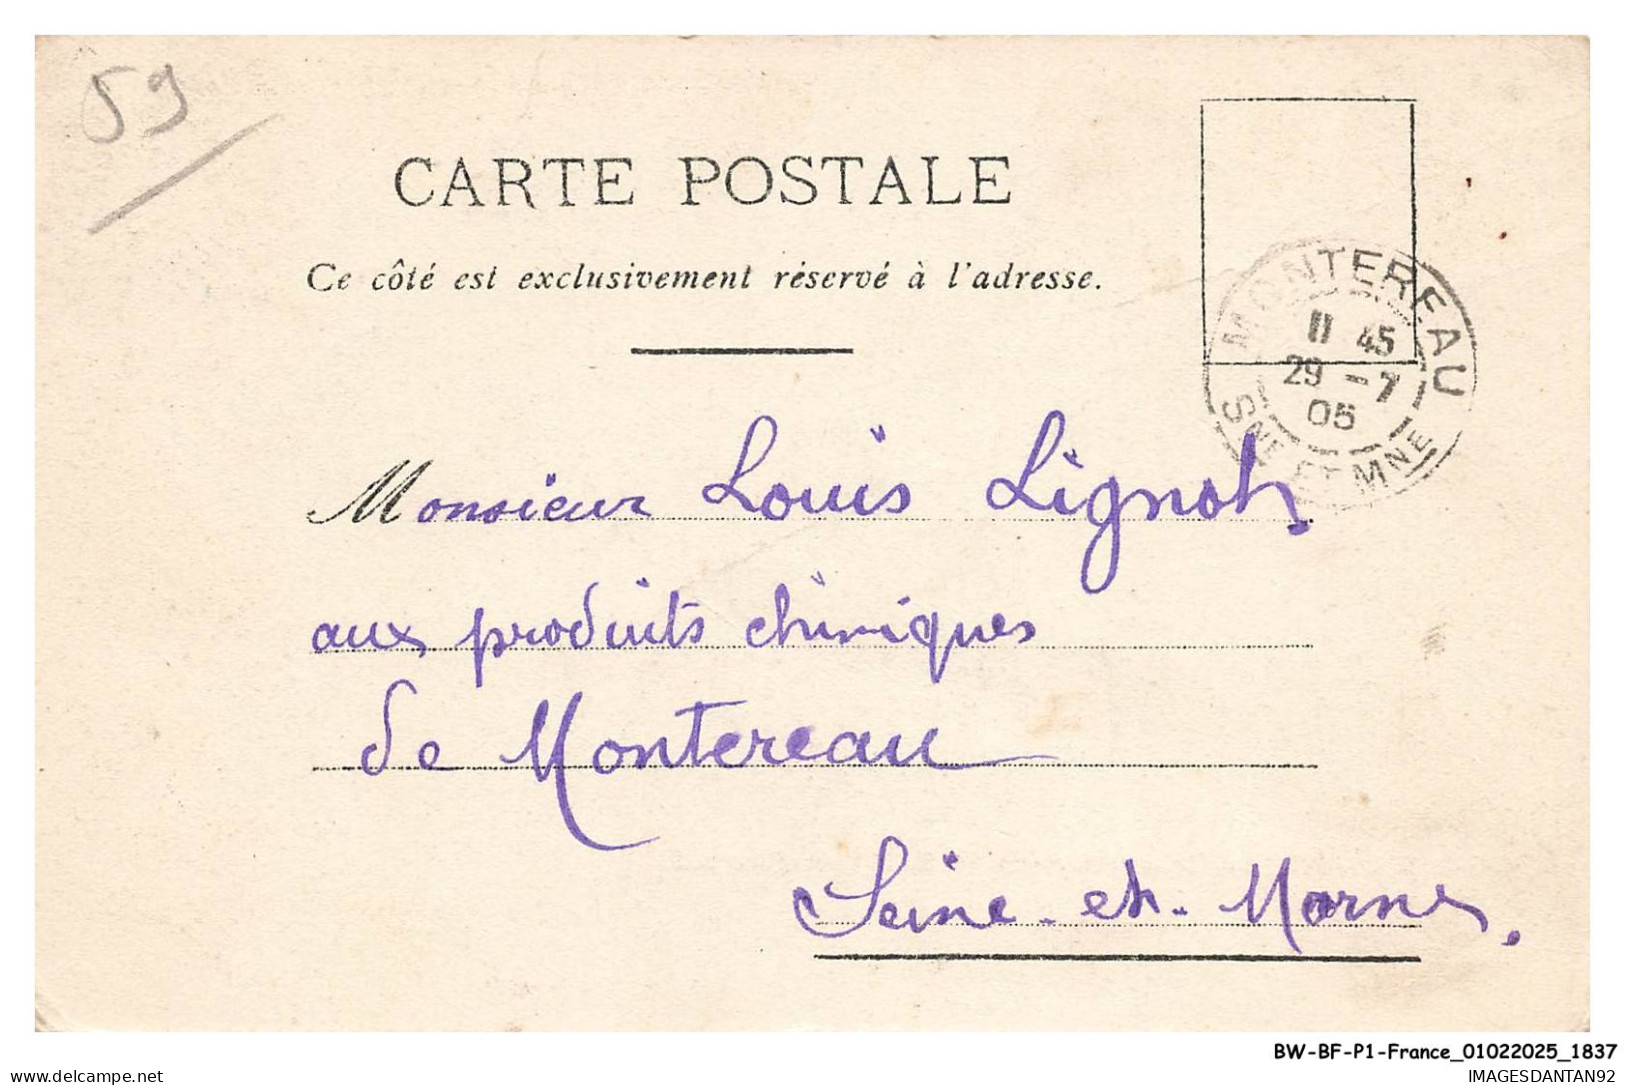 59
CARTE POSTALE
Ce côté est exclusivement réservé à l'adresse.
MONTEREAU
11 45
29 - 7
05
SNE ET MNE
Monsieur Louis Lignot
aux produits chimiques
de Montereau
Seine-et-Marne.
BW-BF-P1-France_01022025_1837
www.delcampe.net
IMAGESDANTAN92